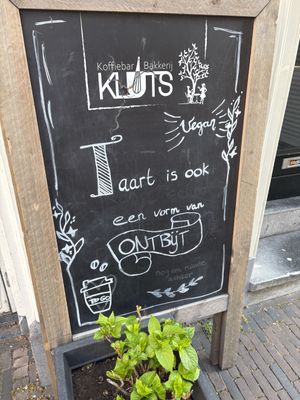 Koffiebar Bakkerij
KLUTS
Vegan
Taart is ook
een vorm van
ONTBIJT
TO GO